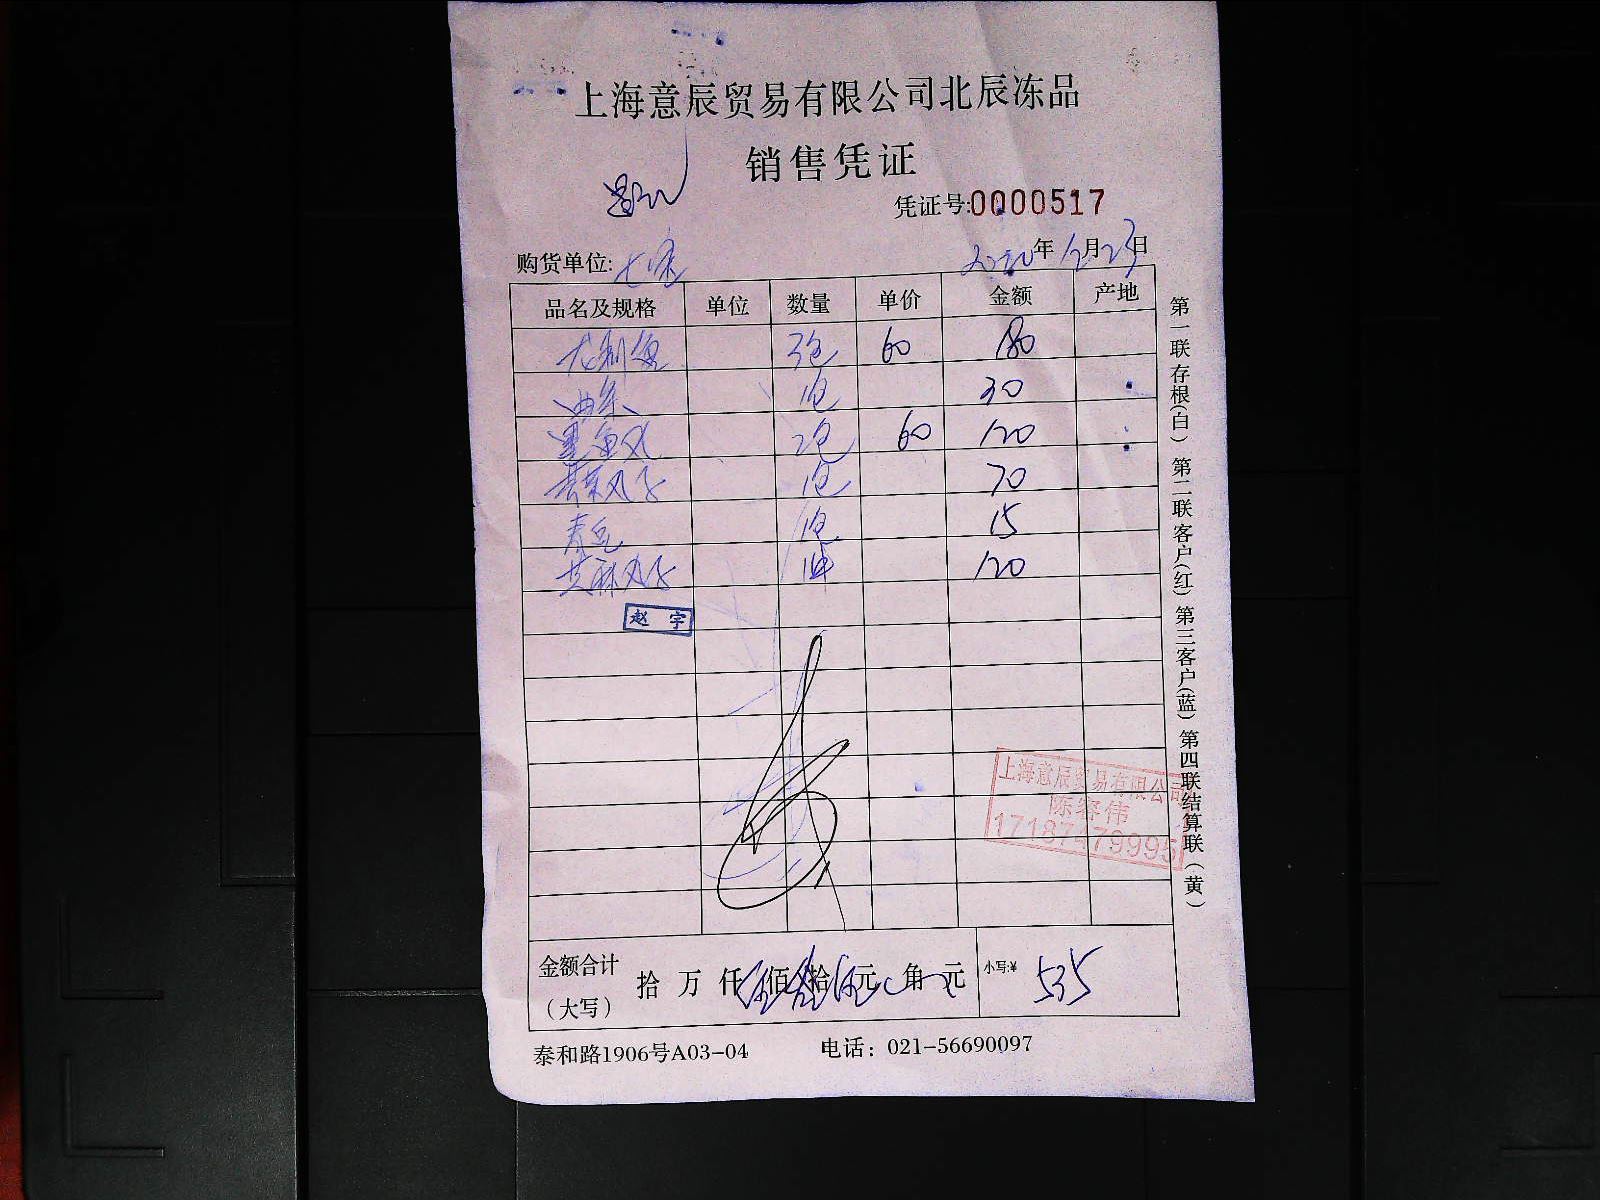 上海意辰贸易有限公司北辰冻品
销售凭证
凭证号:0000517
购货单位: 2020年12月23日
品名及规格 单位 数量 单价 金额 产地
龙利鱼 3包 60 180
1包 30
墨鱼丸 2包 60 120
贡菜丸子 1包 70
春卷 1包 15
芝麻丸子 1件 120
赵宇
上海意辰贸易有限公司
陈容伟
17187479995
金额合计(大写) 拾 万 仟 伍佰 叁拾 伍元 角 元 小写:¥ 535
泰和路1906号A03-04 电话：021-56690097
第一联存根(白) 第二联客户(红) 第三客户(蓝) 第四联结算联(黄)